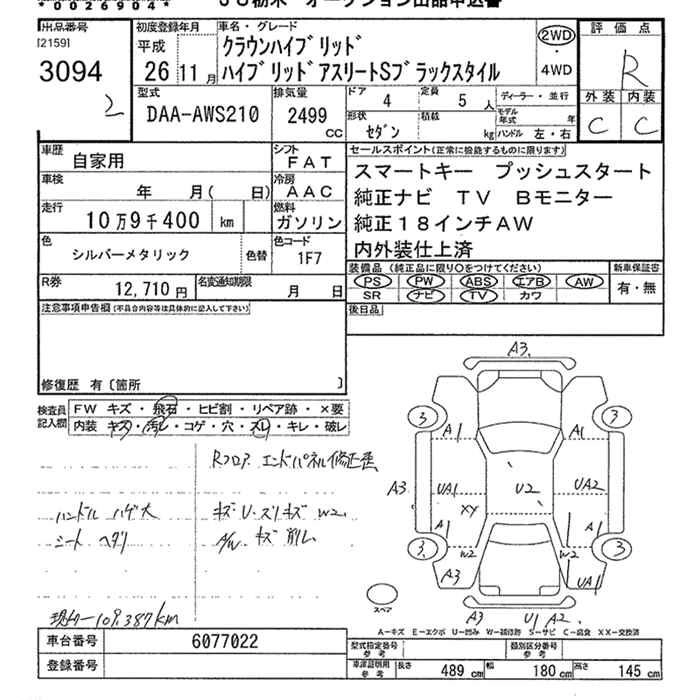 * 00269904 *
JU栃木 オークション出品申込書
出品番号
[2159]
3094
2
初度登録年月
平成
26 11月
車名・グレード
クラウンハイブリッド
ハイブリッドアスリートSブラックスタイル
2WD
4WD
評価点
R
外装 内装
C C
型式
DAA-AWS210
排気量
2499
CC
ドア
4
定員
5人
形状
セダン
積載
kg
ディーラー・並行
モデル年式 年
ハンドル 左・右
車歴
自家用
シフト
FAT
車検
年 月( 日)
冷房
AAC
走行
10万9千400 km
燃料
ガソリン
色
シルバーメタリック
色替
色コード
1F7
R券
12,710円
名変通知期限
月 日
セールスポイント(正常に機能するものに限ります)
スマートキー プッシュスタート
純正ナビ TV Bモニター
純正18インチAW
内外装仕上済
装備品 (純正品に限り〇をつけてください)
PS PW ABS エアB AW
SR ナビ TV カワ
新車保証書
有・無
後日品
注意事項申告欄(不具合内容等は具体的に記入して下さい)
修復歴 有〔箇所 〕
検査員
記入欄
FW キズ・飛石・ヒビ割・リペア跡・×要
内装 キズ・汚レ・コゲ・穴・スレ・キレ・破レ
Rフロア エンドパネル修正歪
ハンドル ハゲ大
シート ヘタリ
キズ・U・スリキズ W2
A/W キズ 削レ
現メーター109,387km
A3
3 3
A1 A1
A3
UA1 U2 UA2
XY
A1
3 3
W2 W2
A3 UA1
A3 U1 A2
スペア
A-キズ E-エクボ U-凹み W-補修跡 S-サビ C-腐食 XX-交換済
車台番号
6077022
登録番号
型式指定番号
参考
類別区分番号
参考
車庫証明用
参考
長さ 489cm 幅 180cm 高さ 145cm